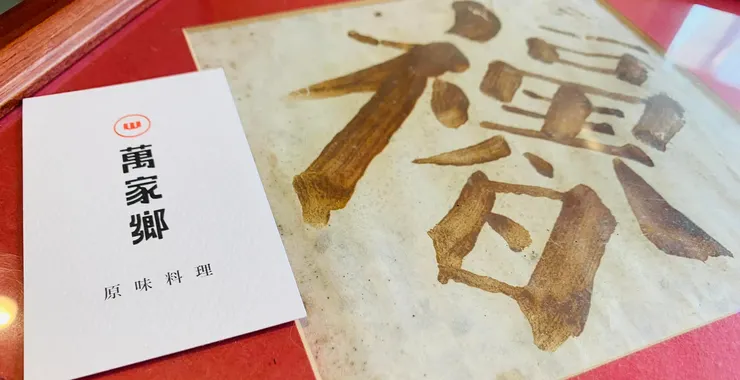 W
萬家鄉
原味料理